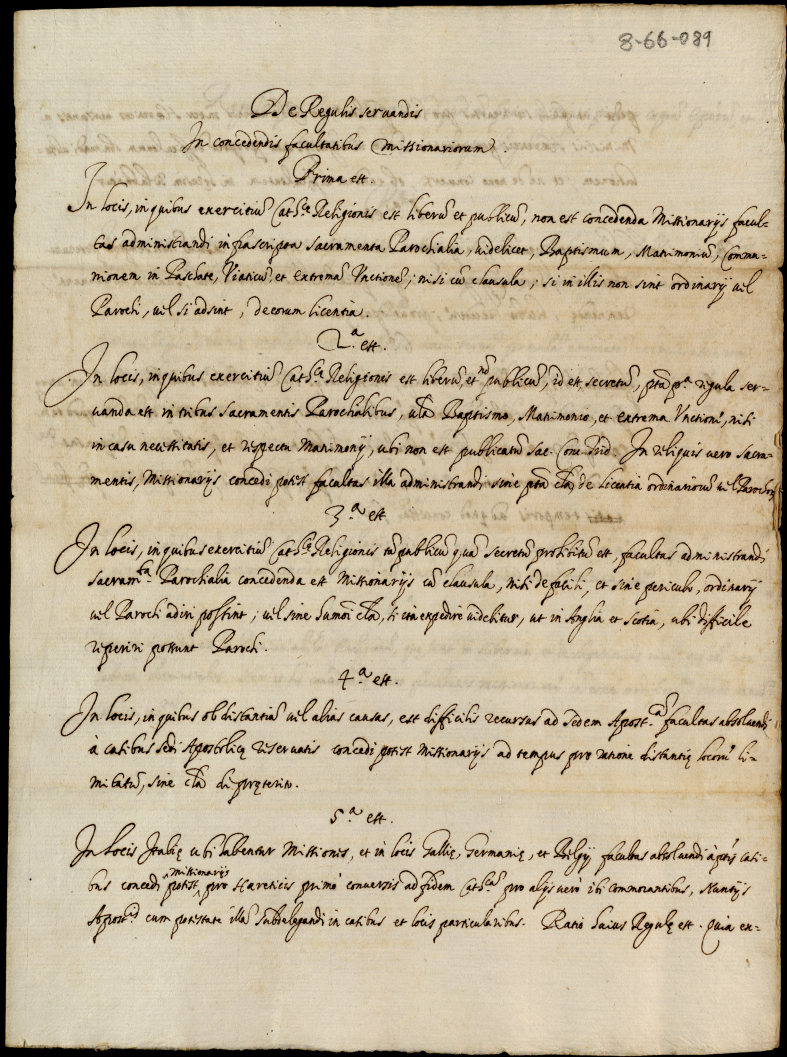 8-66-089
De Regulis servandis
In concedendis facultatibus Missionariorum.
Prima est.
In locis, in quibus exercitiũ Cath.cę Religionis est liberũ et publicũ, non est concedenda Missionarijs facul-
tas administrandi infrascripta sacramenta Parochialia, videlicet, Baptismum, Matrimoniũ, Commu-
nionem in Paschate, Viaticũ, et extremã Unctionẽ; nisi cũ clausula; si in illis non sint ordinarij vel
Parochi, vel si adsint, de eorum licentia.
2.a est.
In locis, in quibus exercitiũ Cath.cę Religionis est liberũ, et nõ publicũ, id est, secretũ, pta p.a regula ser-
vanda est in tribus sacramentis Parochialibus, Baptismo, Matrimonio, et extrema Unctione, nisi
in casu necessitatis, et respectu Matrimonij, ubi non est publicatũ Sac. Conc. Trid. In reliquis vero sacra-
mentis, Missionarijs concedi potest facultas illa administrandi sine pta clã, de licentia ordinariorũ vel Parochorũ
3.a est
In locis, in quibus exercitiũ Cath.cę Religionis tũ publicũ quã secretũ prohibitũ est, facultas administrandi
sacram.ta Parochialia concedenda est Missionarijs cũ clausula, nisi de facili, et sine periculo, ordinarij
vel Parochi adiri possint; vel sine clã, si ita expedire videbitur, ut in Anglia et Scotia, ubi difficile
reperiri possunt Parochi.
4.a est.
In locis, in quibus ob distantiã vel alias causas, est difficilis recursus ad Sedem Apost.cã facultas absolvendi
à casibus Sedi Apostolicę reservatis concedi potest Missionarijs ad tempus pro ratione distantię locorũ li-
mitatũ, sine clã de pręterito.
5.a est.
In locis Italię ubi habentur Missiones, et in locis Gallię, Germanię, et Belgij facultas absolvendi à ptis casi-
bus concedi potest Missionarijs, pro Hæreticis primò conversis ad fidem Cath.cã pro alijs verò ibi commorantibus, Nuntijs
Apost.cis cum potestate illã subdelegandi in casibus et locis particularibus. Ratio huius Regulę est. Quia ex-